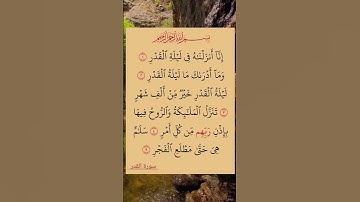 بسم الله الرحمن الرحيم
إِنَّآ أَنزَلْنَـٰهُ فِى لَيْلَةِ ٱلْقَدْرِ ١
وَمَآ أَدْرَىٰكَ مَا لَيْلَةُ ٱلْقَدْرِ ٢
لَيْلَةُ ٱلْقَدْرِ خَيْرٌ مِّنْ أَلْفِ شَهْرٍ
٣ تَنَزَّلُ ٱلْمَلَـٰٓئِكَةُ وَٱلرُّوحُ فِيهَا
بِإِذْنِ رَبِّهِم مِّن كُلِّ أَمْرٍ ٤ سَلَـٰمٌ
هِىَ حَتَّىٰ مَطْلَعِ ٱلْفَجْرِ ٥
سورة القدر